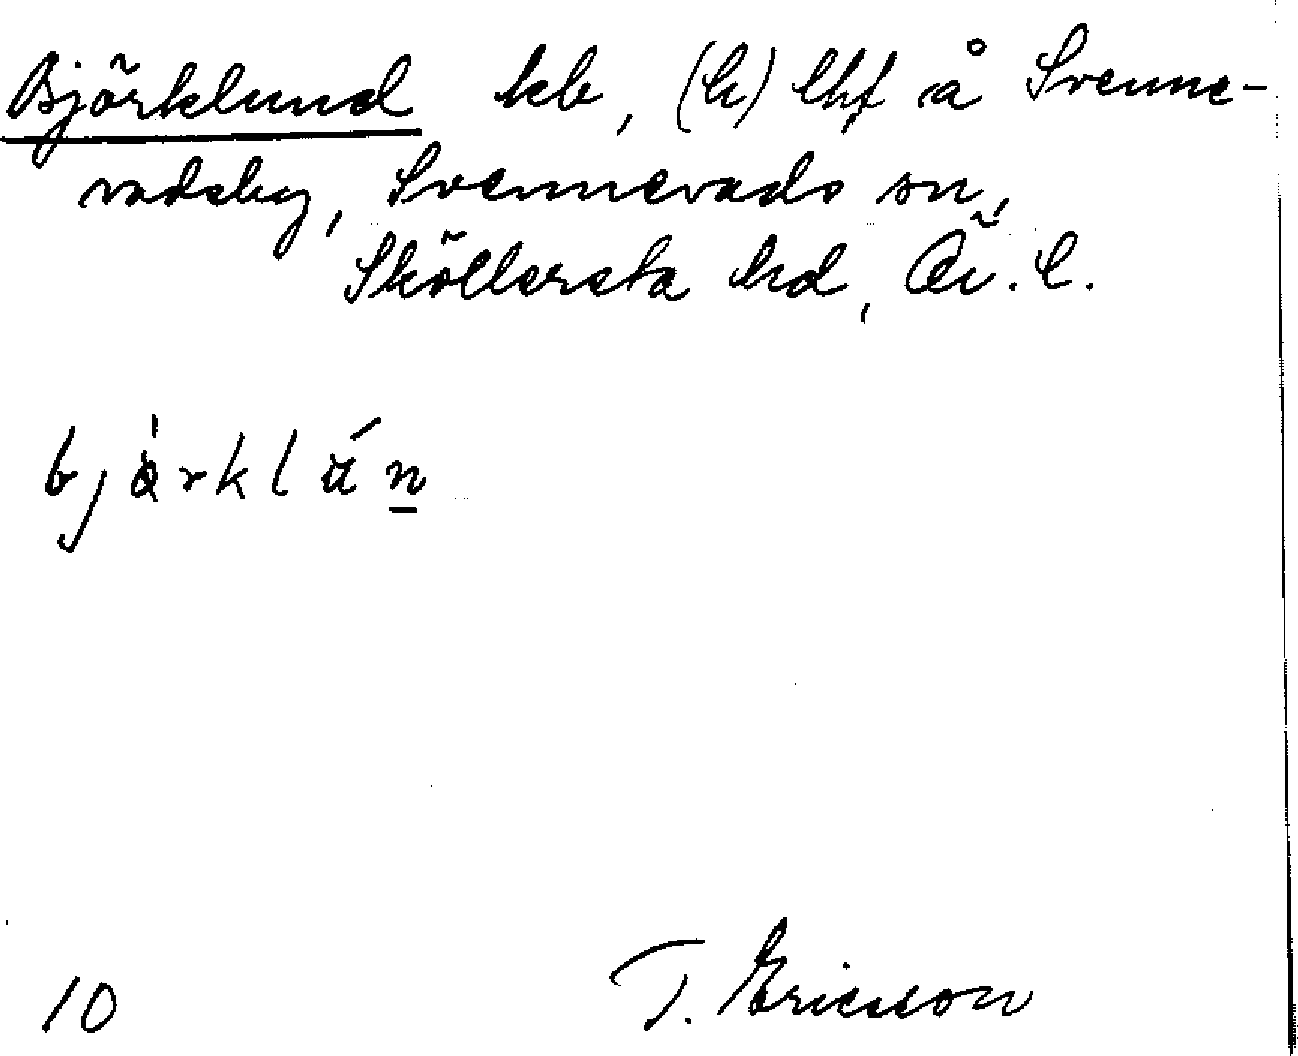 Björklund kb, (h) lhf å Svenne-
vadsby, Svennevads sn,
Sköllersta hd, Ör. l.
bjòrklún
10 T. Ericsson